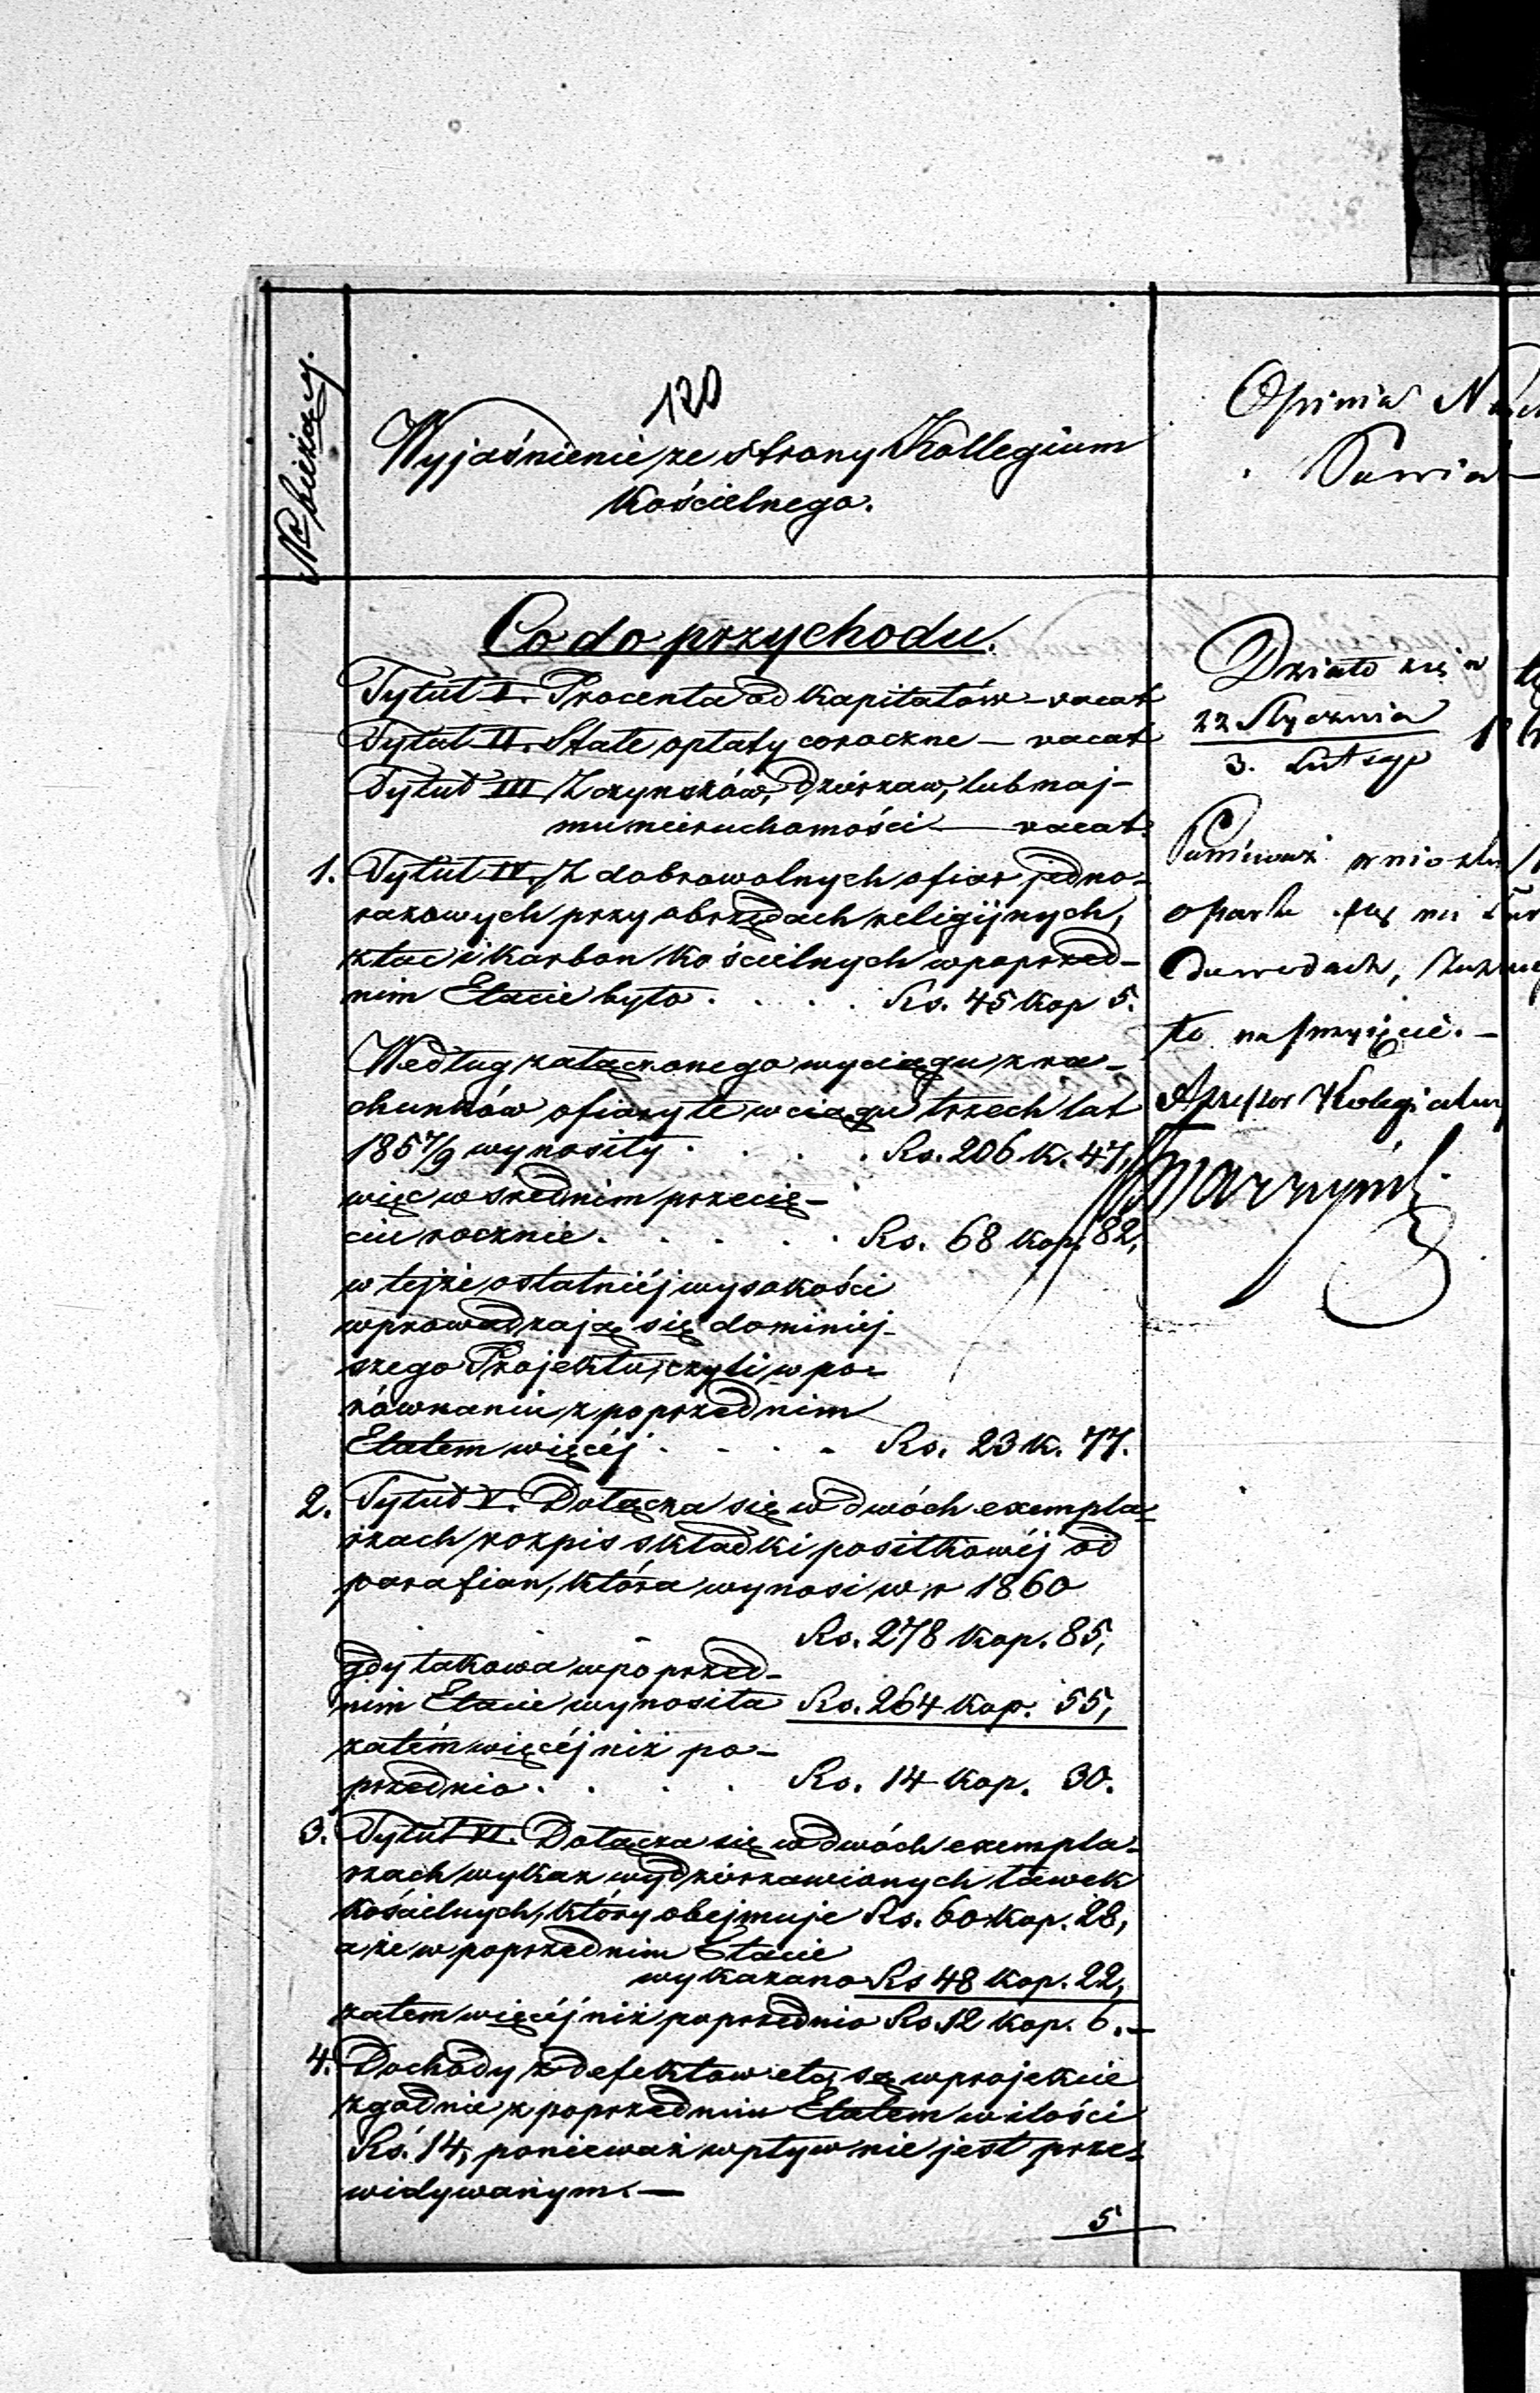 No bieżący.
120
Wyjaśnienie ze strony Kollegium
Kościelnego.
Opinia
Co do przychodu.
Tytuł I. Procenta od Kapitałów – vacat
Tytuł II. Stałe opłaty coroczne – vacat
Tytuł III Z czynszów, Dzierzaw, lub naj-
mu nieruchomości — vacat.
1. Tytuł IV. Z dobrowolnych ofiar jedno-
razowych przy obrzędach religijnych,
z tac i Karbon Kościelnych w poprzed-
nim Etacie było . . . . Rs. 45 Kop 5.
Według załączonego wyciągu z ra-
chunków ofiary te w ciągu trzech lat
1857/9 wynosiły . . . . Rs. 206 K. 47,
więc w srednim przecię-
ciu rocznie . . . . . Rs. 68 Kop. 82,
w tejże ostatniéj wysokości
wprowadzają się do niniej-
szego Projektu, czyli w po-
równaniu z poprzednim
Etatem więcéj . . . . Rs. 23 K. 77.
2. Tytuł V. Dołącza się w dwóch exempla-
rzach rozpis składki posiłkowéj od
parafian, która wynosi w r 1860
Rs. 278 Kop. 85,
gdy takowa w poprzed-
nim Etacie wynosiła Rs. 264 Kop. 55,
zatém więcéj niż po-
przednio . . . . Rs. 14 Kop. 30.
3. Tytuł VI. Dołącza się w dwóch exempla-
rzach wykaz wydzierzawionych ławek
Kościelnych, który obejmuje Rs. 60 Kop. 28,
a że w poprzednim Etacie
wykazano Rs 48 Kop. 22,
zatem więcéj niż poprzednio Rs. 12 Kop. 6. –
4. Dochody z defektow etą są w projekcie
zgodnie z poprzednim Etatem w ilości
Rs. 14, ponieważ wpływ nie jest prze-
widywanym. —
5
Działo się w
22 Stycznia
3. Lutego
Ponieważ wnioski
oparte są na
Dowodach,
to na przyjęcie. –
Assessor Kolegialny